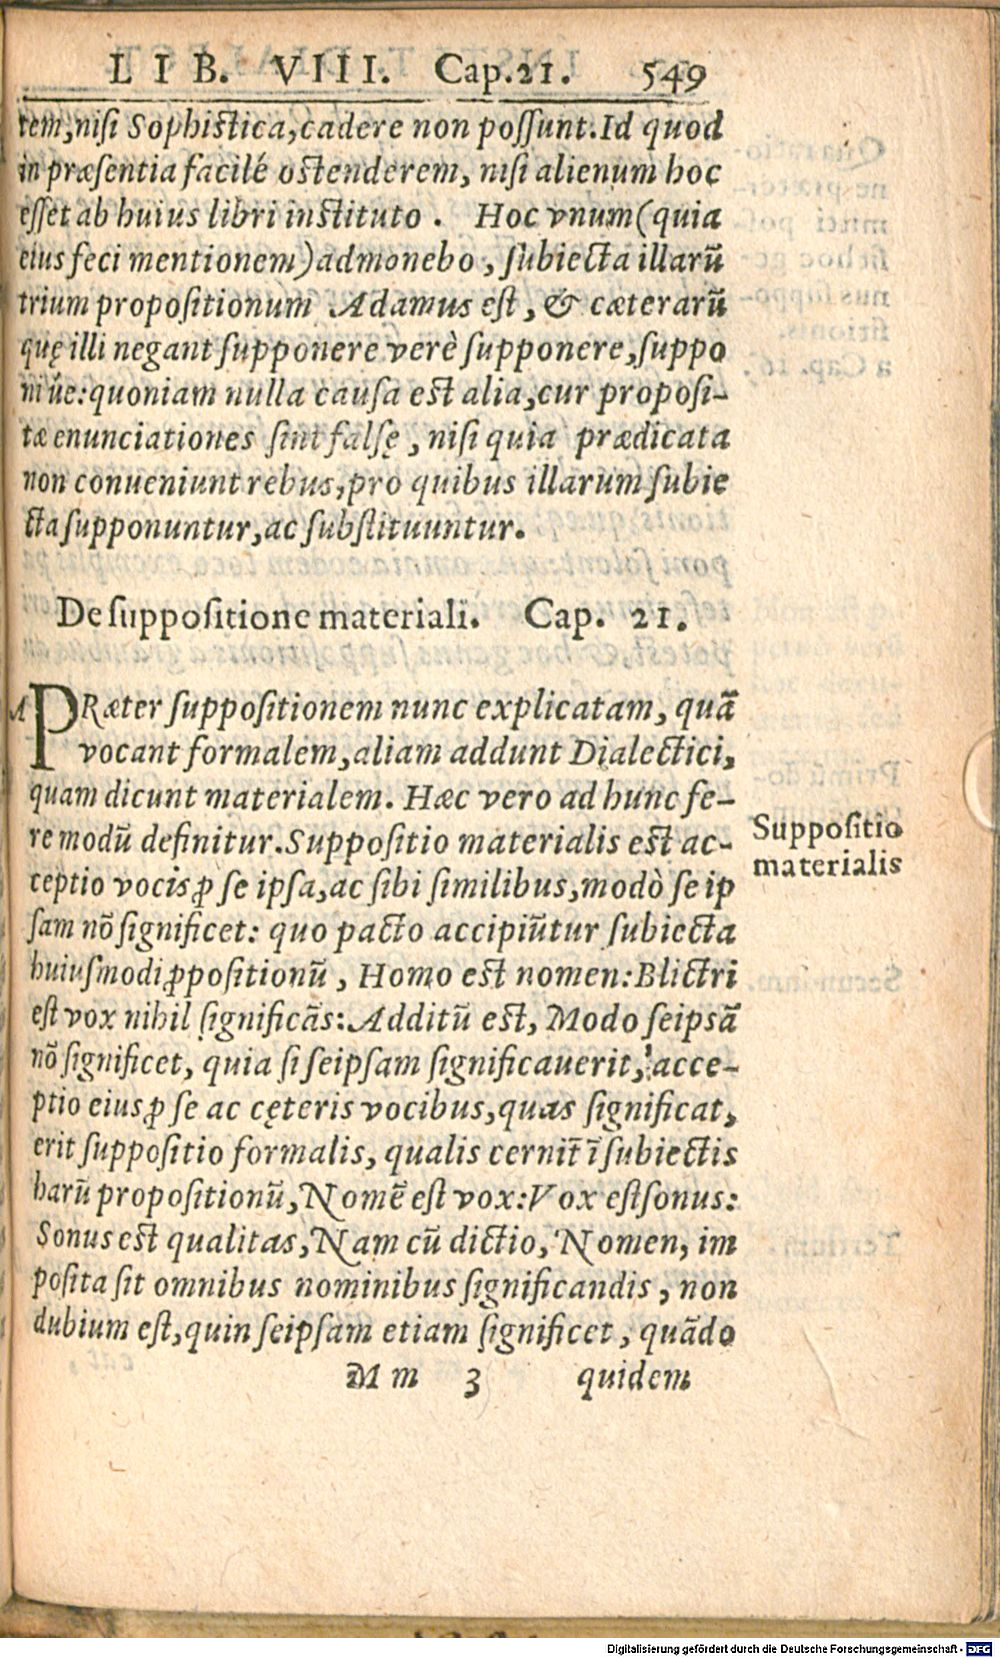 LIB. VIII. Cap.21. 549
rem,nisi Sophistica,cadere non possunt.Id quod
in præsentia facilè ostenderem, nisi alienum hoc
esset ab huius libri instituto . Hoc vnum(quia
eius feci mentionem)admonebo, subiecta illarū
trium propositionum Adamus est, & cæterarū
quę illi negant supponere verè supponere,suppo
niúe:quoniam nulla causa est alia,cur proposi-
tæ enunciationes sint falsę, nisi quia prædicata
non conueniunt rebus,pro quibus illarum subie
cta supponuntur,ac substituuntur.
De suppositione materiali. Cap. 21.
A PRæter suppositionem nunc explicatam, quā
vocant formalem,aliam addunt Dialectici,
quam dicunt materialem. Hæc vero ad hunc fe-
re modū definitur.Suppositio materialis est ac-
ceptio vocis ꝓ se ipsa,ac sibi similibus,modò se ip
sam nō significet: quo pacto accipiūtur subiecta
huiusmodi ꝓpositionū, Homo est nomen:Blictri
est vox nihil significās:Additū est, Modo seipsā
nō significet, quia si seipsam significauerit, acce-
ptio eius ꝓ se ac cęteris vocibus,quas significat,
erit suppositio formalis, qualis cernit̄ ī subiectis
harū propositionū,Nomē est vox:Vox est sonus:
Sonus est qualitas,Nam cū dictio, Nomen, im
posita sit omnibus nominibus significandis, non
dubium est,quin seipsam etiam significet, quādo
Mm 3 quidem
Suppositio
materialis
Digitalisierung gefördert durch die Deutsche Forschungsgemeinschaft - DFG